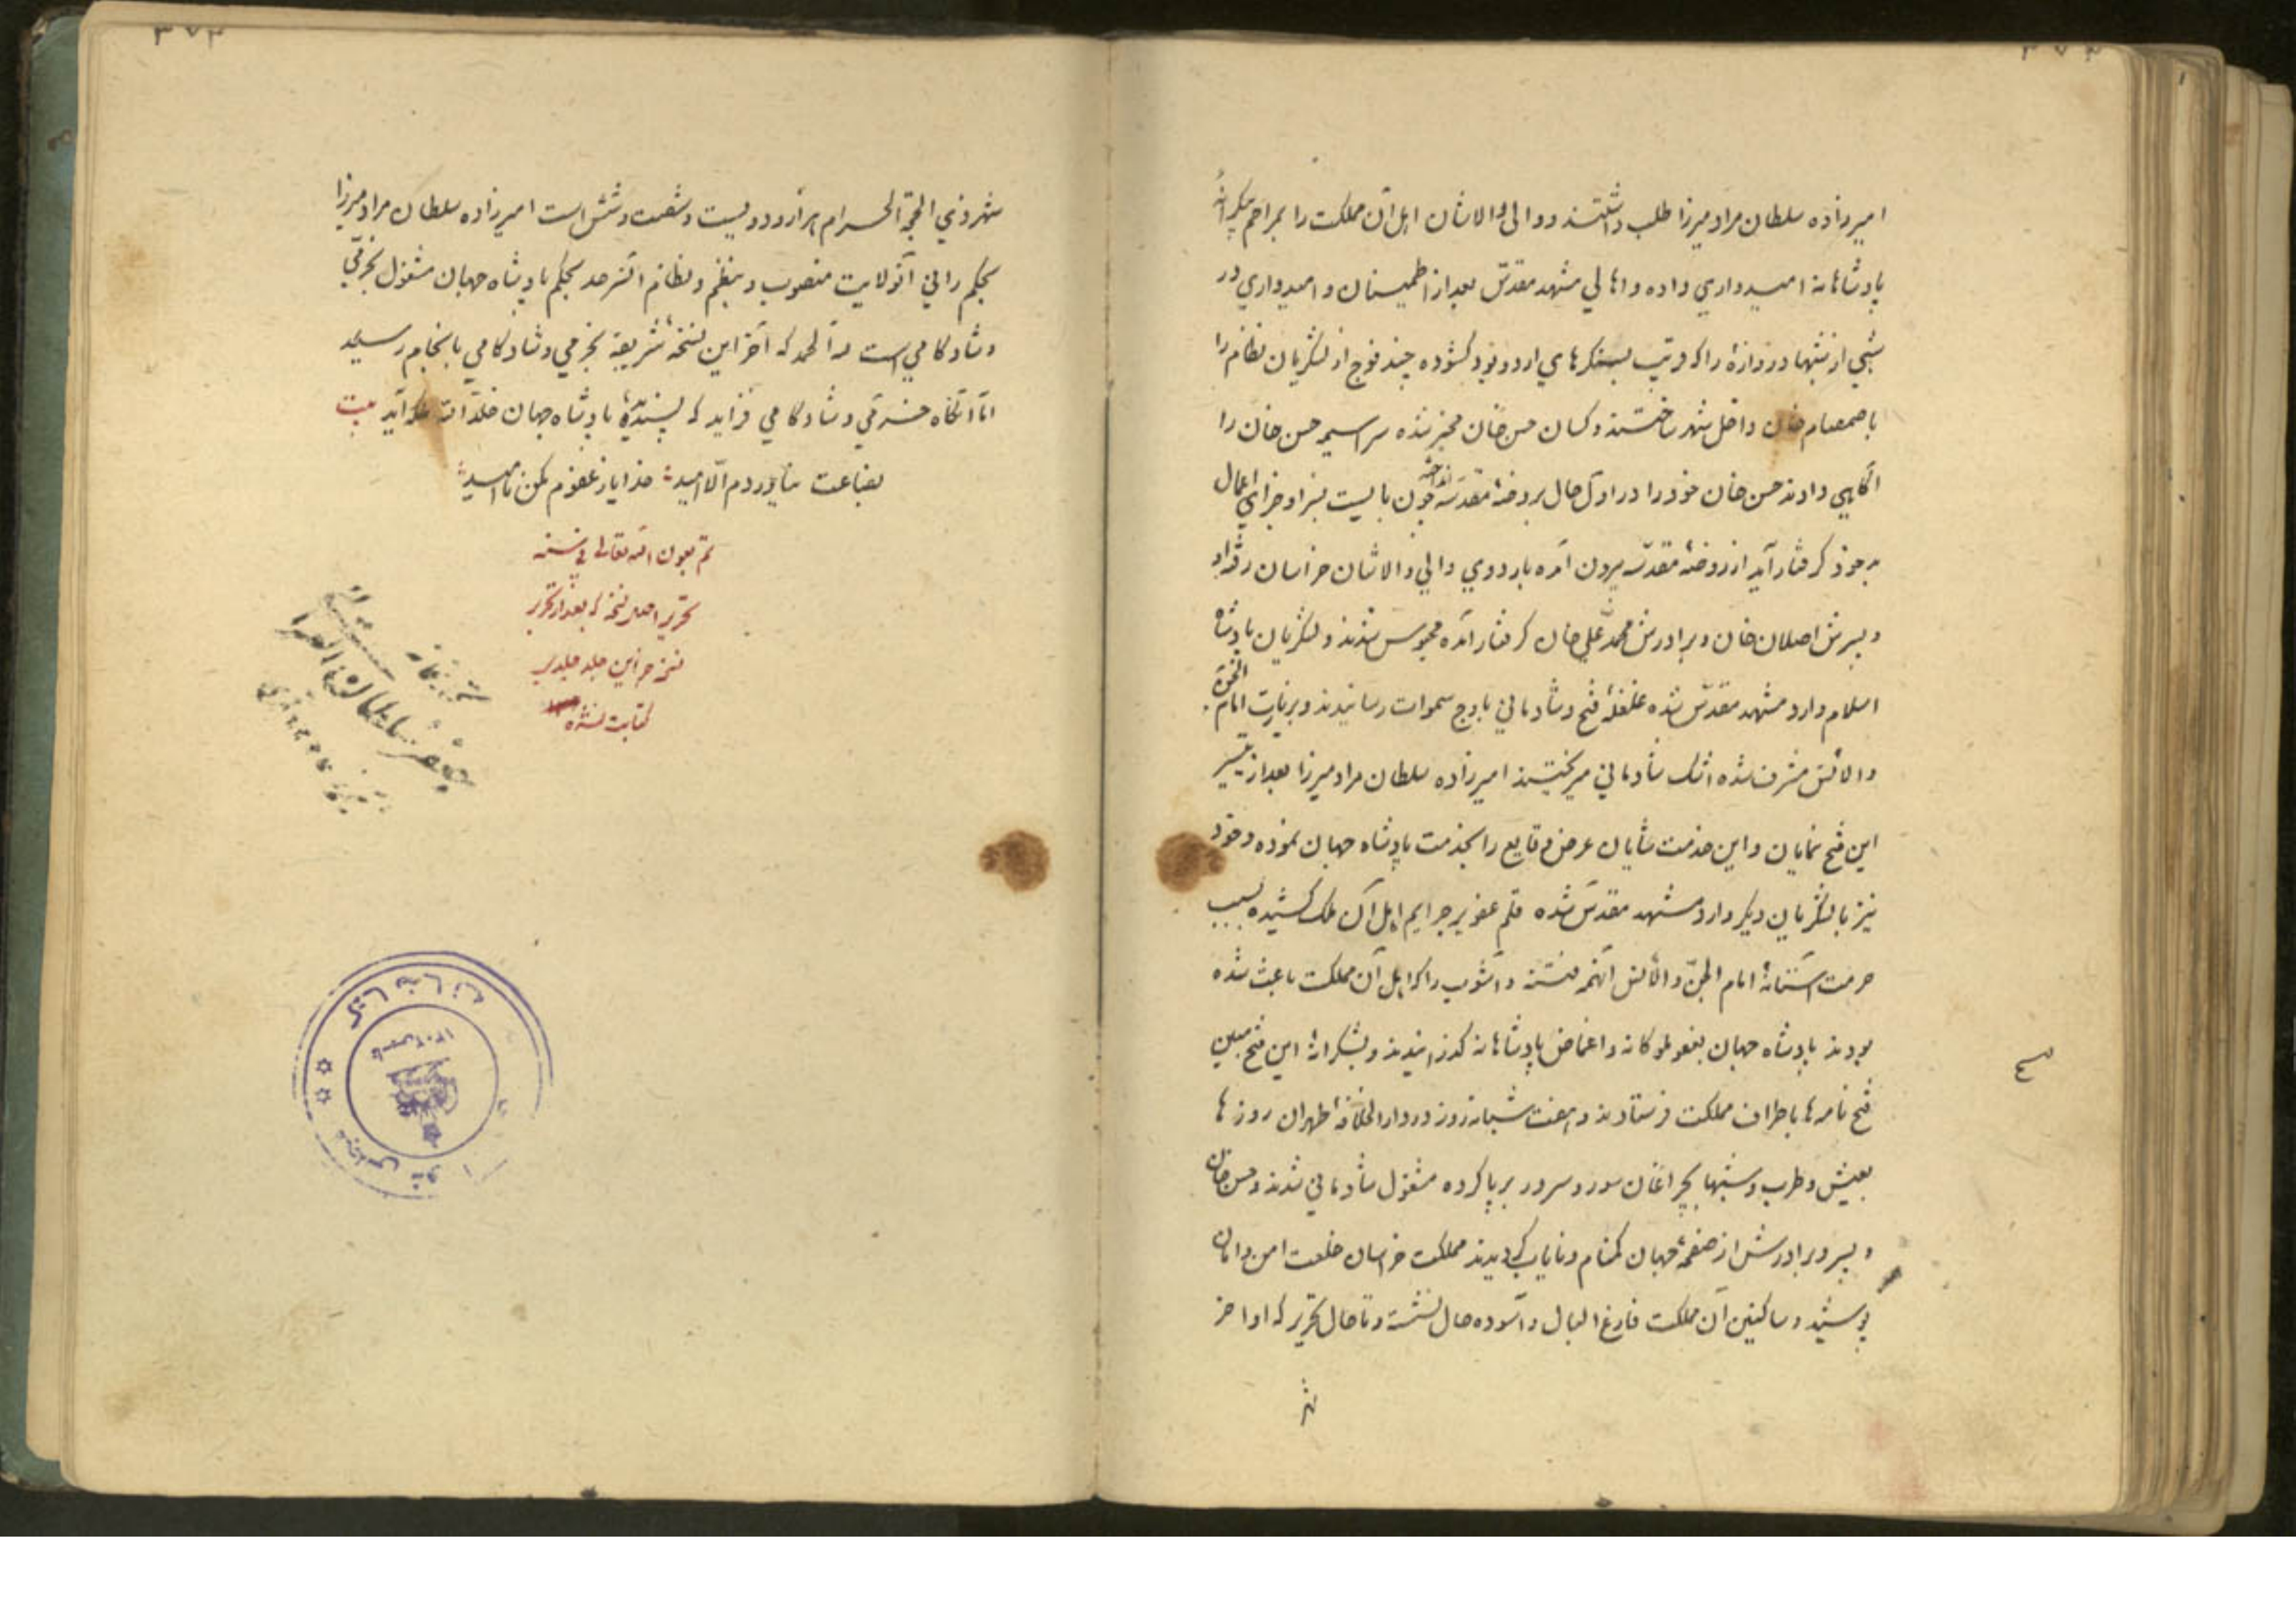 امیرزاده سلطان مراد میرزا طلب داشتند و والی والاشان اهل آن مملکت را بمراحم بیکرانهٔ
پادشاهانه امیدواری داده و اهالی مشهد مقدّس بعد از اطمینان و امیدواری در
شبی از شبها دروازهٔ را که قریب بسنکرهای اردو بود کشوده چند فوج از لشکریان نظام را
با صمصام خان داخل شهر ساختند و کسان حسن خان مخبر شده سراسیمه حسن خان را
آکاهی دادند حسن خان خود را در اول حال بروضهٔ مقدسه انداخته چون بایست بسزا و جزای اعمال
بد خود کرفتار آید از روضهٔ مقدسه بیرون آمده باردوی والی والاشان خراسان رفته او
و پسرش اصلان خان و برادرش محمد علی خان کرفتار آمده محبوس شدند و لشکریان پادشاه
اسلام وارد مشهد مقدّس شده غلغلهٔ فتح و شادمانی باوج سموات رسانیدند و بزیارت امام الجنّ
والانس مشرف شده اشک شادمانی میریختند امیرزاده سلطان مراد میرزا بعد از تیسیر
این فتح نمایان و این خدمت شایان عرض وقایع را بخدمت پادشاه جهان نموده و خود
نیز با لشکریان دیکر وارد مشهد مقدّس شده قلم عفو بر جرایم اهل آن ملک کشیده بسبب
حرمت آستانهٔ امام الجنّ والانس آنهمه فتنه و آشوب را که اهل آن مملکت باعث شده
بودند پادشاه جهان بعفو ملوکانه و اغماض پادشاهانه کذرانیدند و بشکرانهٔ این فتح مبین
فتح نامه‌ها باطراف مملکت فرستادند و هفت شبانه‌روز در دارالخلافهٔ طهران روزها
بعیش و طرب و شبها بچراغان سور و سرور برپا کرده مشغول شادمانی شدند و حسن خان
و پسر و برادرش از صفحهٔ جهان کمنام و نایاب کردیدند مملکت خراسان خلعت امن و امان
پوشید و ساکنین آن مملکت فارغ البال و آسوده حال نشسته و تا حال تحریر که اواخر
شهر
شهر ذی الحجة الحرام هزار و دویست و شصت و شش است امیرزاده سلطان مراد میرزا
بحکمرانی آنولایت منصوب و بنظم و نظام آنسرحد بحکم پادشاه جهان مشغول بخرّمی
و شادکامی است لله الحمد که آخر این نسخهٔ شریفه بخرمی و شادکامی بانجام رسید
امّا آنکاه خرّمی و شادکامی فزاید که پسندیدهٔ پادشاه جهان خلد الله ملکه آید بیت
بضاعت نیاوردم الّا امید خدایا ز عفوم مکن ناامید
تم بعون الله تعالی فی سنه
تحریر اصل نسخه که بعد از تحریر
نسخه جز این جلد جلدی
کتابت نشده